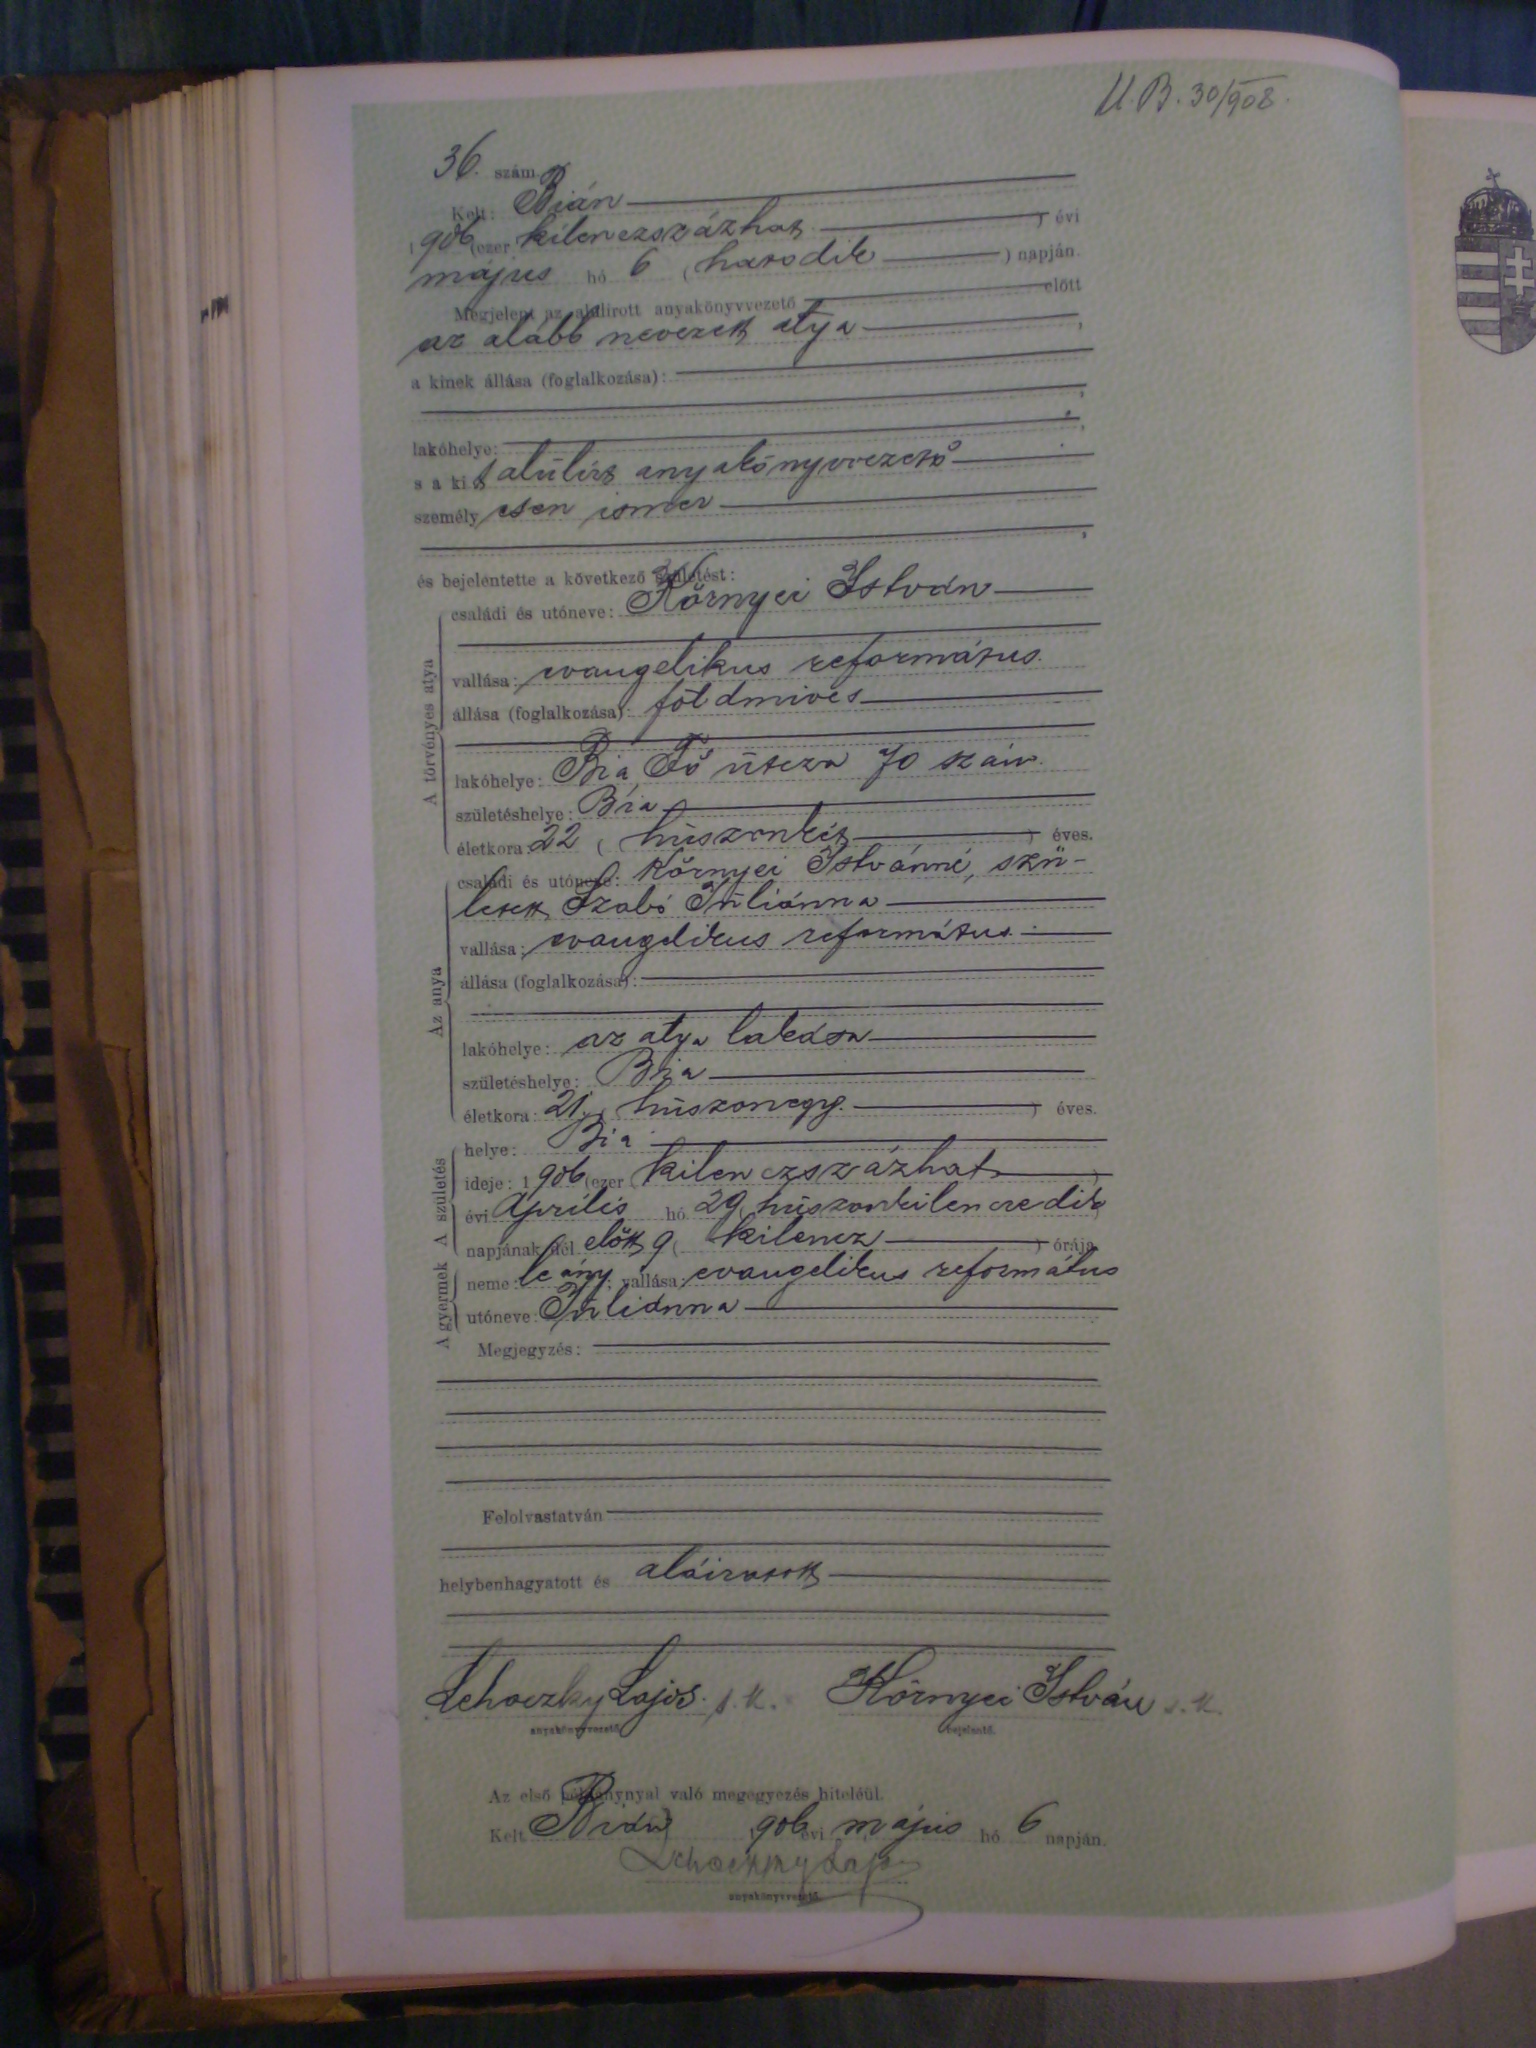 U. B. 30/908.
36. szám
Kelt: Bián
1906 (ezer kilenczszázhat ) évi
május hó 6 (hatodik ) napján.
Megjelent az alulirott anyakönyvvezető előtt
az alább nevezett atya ,
a kinek állása (foglalkozása):
lakóhelye:
s a ki t alúlírt anyakönyvvezető
személy esen ismer
és bejelentette a következő születést:
A törvényes atya
családi és utóneve: Környei István
vallása: evangelikus református.
állása (foglalkozása): földmives
lakóhelye: Bia, Fő útcza 70 szám.
születéshelye: Bia
életkora: 22 (húszonkét ) éves.
Az anya
családi és utóneve: Környei Istvánné, szü-
letett Szabó Júliánna
vallása: evangelikus református.
állása (foglalkozása):
lakóhelye: az atya lakása
születéshelye: Bia
életkora: 21. (húszonegy. ) éves.
A születés
helye: Bia
ideje: 1906 (ezer kilenczszázhat )
évi április hó 29 (húszonkilenczedik)
napjának dél előtt 9 ( kilencz ) órája.
A gyermek
neme: leány; vallása: evangelikus református
utóneve: Júliánna
Megjegyzés:
Felolvastatván
helybenhagyatott és aláíratott
Lehoczky Lajos. s. k. Környei István s. k.
anyakönyvvezető. bejelentő.
Az első példánynyal való megegyezés hiteléül.
Kelt Bián, 1906 évi május hó 6 napján.
Lehoczky Lajos
anyakönyvvezető.